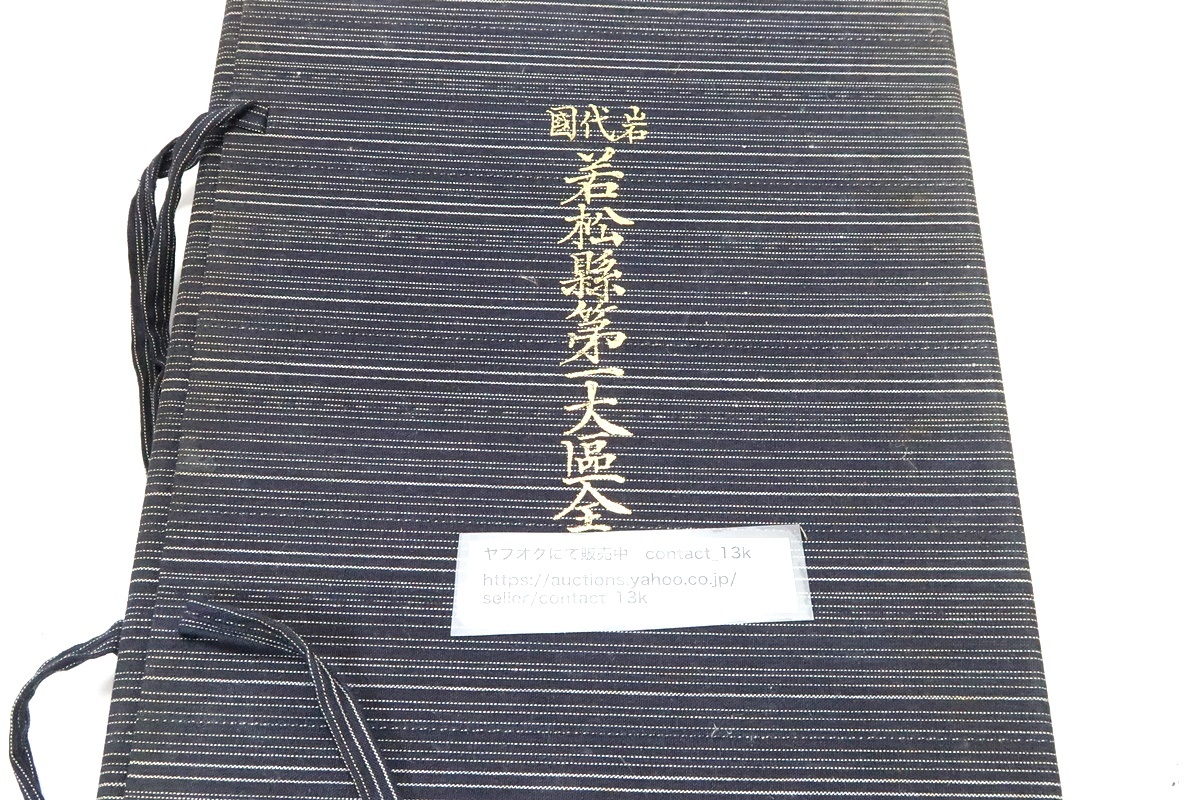 岩代國
若松縣第一大區全
ヤフオクにて販売中 contact_13k
https://auctions.yahoo.co.jp/
seller/contact_13k